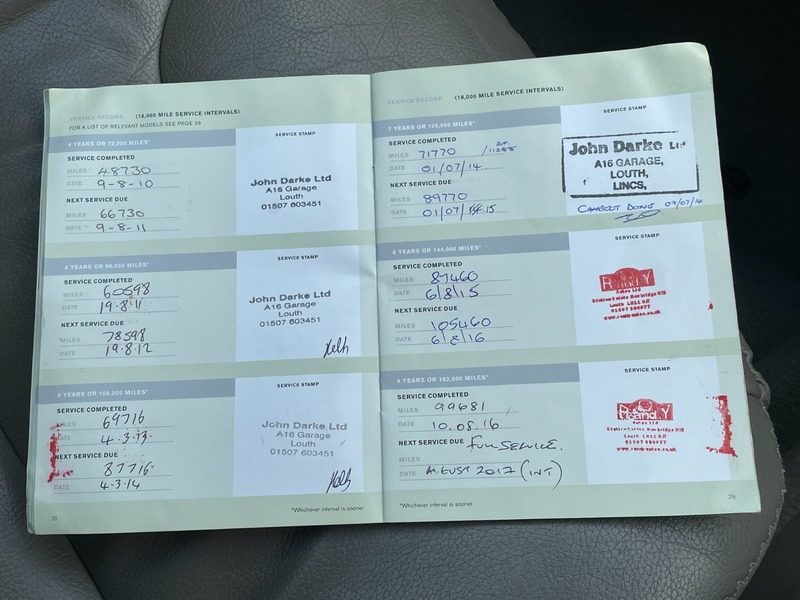 SERVICE RECORD (18,000 MILE SERVICE INTERVALS)
FOR A LIST OF RELEVANT MODELS SEE PAGE 26
4 YEARS OR 72,000 MILES*
SERVICE STAMP
SERVICE COMPLETED
MILES 48730
DATE 9-8-10
NEXT SERVICE DUE
MILES 66730
DATE 9-8-11
John Darke Ltd
A16 Garage
Louth
01507 603451
5 YEARS OR 90,000 MILES*
SERVICE STAMP
SERVICE COMPLETED
MILES 60598
DATE 19.8.11
NEXT SERVICE DUE
MILES 78598
DATE 19.8.12
John Darke Ltd
A16 Garage
Louth
01507 603451
6 YEARS OR 108,000 MILES*
SERVICE STAMP
SERVICE COMPLETED
MILES 69716
DATE 4.3.13
NEXT SERVICE DUE
MILES 87716
DATE 4.3.14
John Darke Ltd
A16 Garage
Louth
01507 603451
28
*Whichever interval is sooner
SERVICE RECORD (18,000 MILE SERVICE INTERVALS)
7 YEARS OR 126,000 MILES*
SERVICE STAMP
SERVICE COMPLETED
MILES 71770
DATE 01/07/14
NEXT SERVICE DUE
MILES 89770
DATE 01/07/15
John Darke Ltd
A16 GARAGE,
LOUTH,
LINCS,
CAMBELT DONE 09/07/14
8 YEARS OR 144,000 MILES*
SERVICE STAMP
SERVICE COMPLETED
MILES 87460
DATE 6/8/15
NEXT SERVICE DUE
MILES 105460
DATE 6/8/16
RandY
Autos Ltd
Station Estate Newbridge Hill
Louth LN11 0JT
01507 600677
www.randyautos.co.uk
9 YEARS OR 162,000 MILES*
SERVICE STAMP
SERVICE COMPLETED
MILES 99681
DATE 10.08.16
NEXT SERVICE DUE FULL SERVICE.
MILES
DATE AUGUST 2017 (INT)
RandY
Autos Ltd
Station Estate Newbridge Hill
Louth LN11 0JT
01507 600677
www.randyautos.co.uk
*Whichever interval is sooner
29